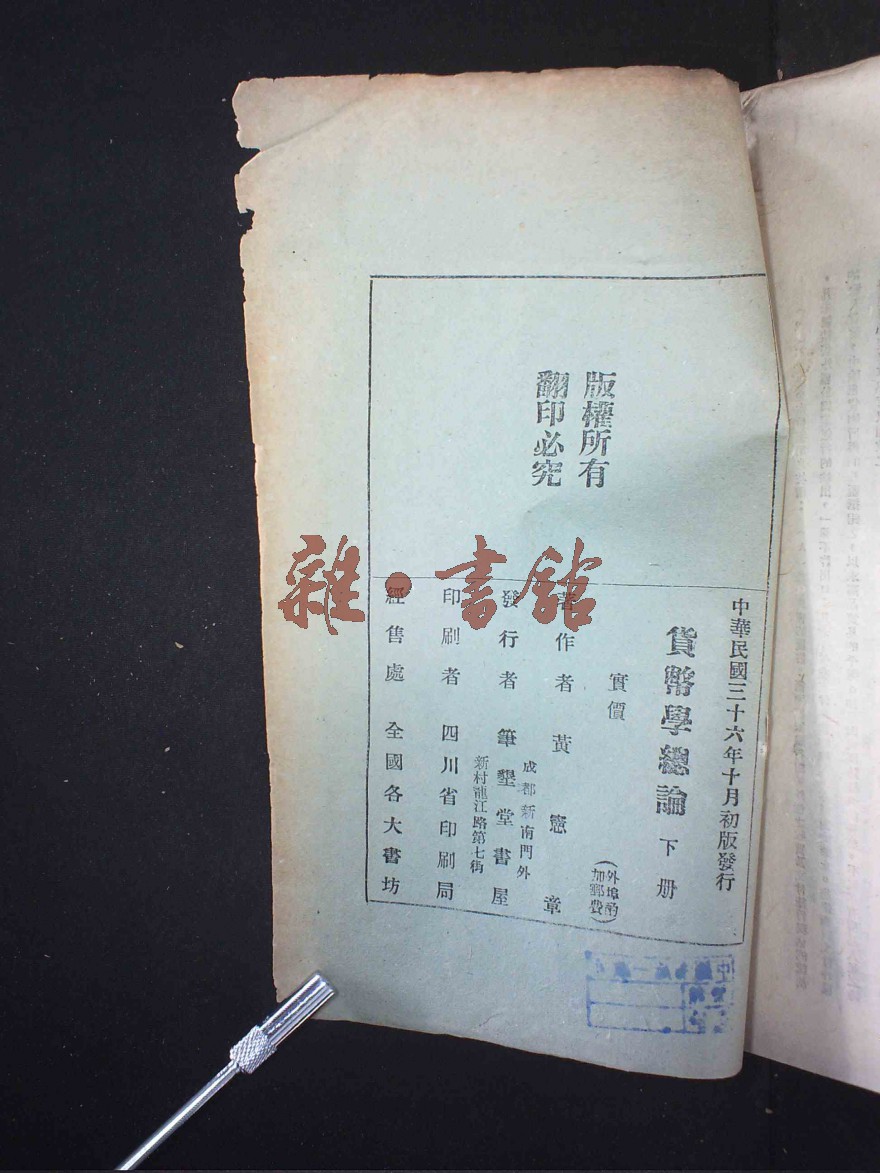 版權所有
翻印必究
中華民國三十六年十月初版發行
貨幣學總論 下册
實價
(外埠酌
加郵費)
著作者 黃憲章
成都新南門外
發行者 筆墾堂書屋
新村龍江路第七街
印刷者 四川省印刷局
經售處 全國各大書坊
雜·書館